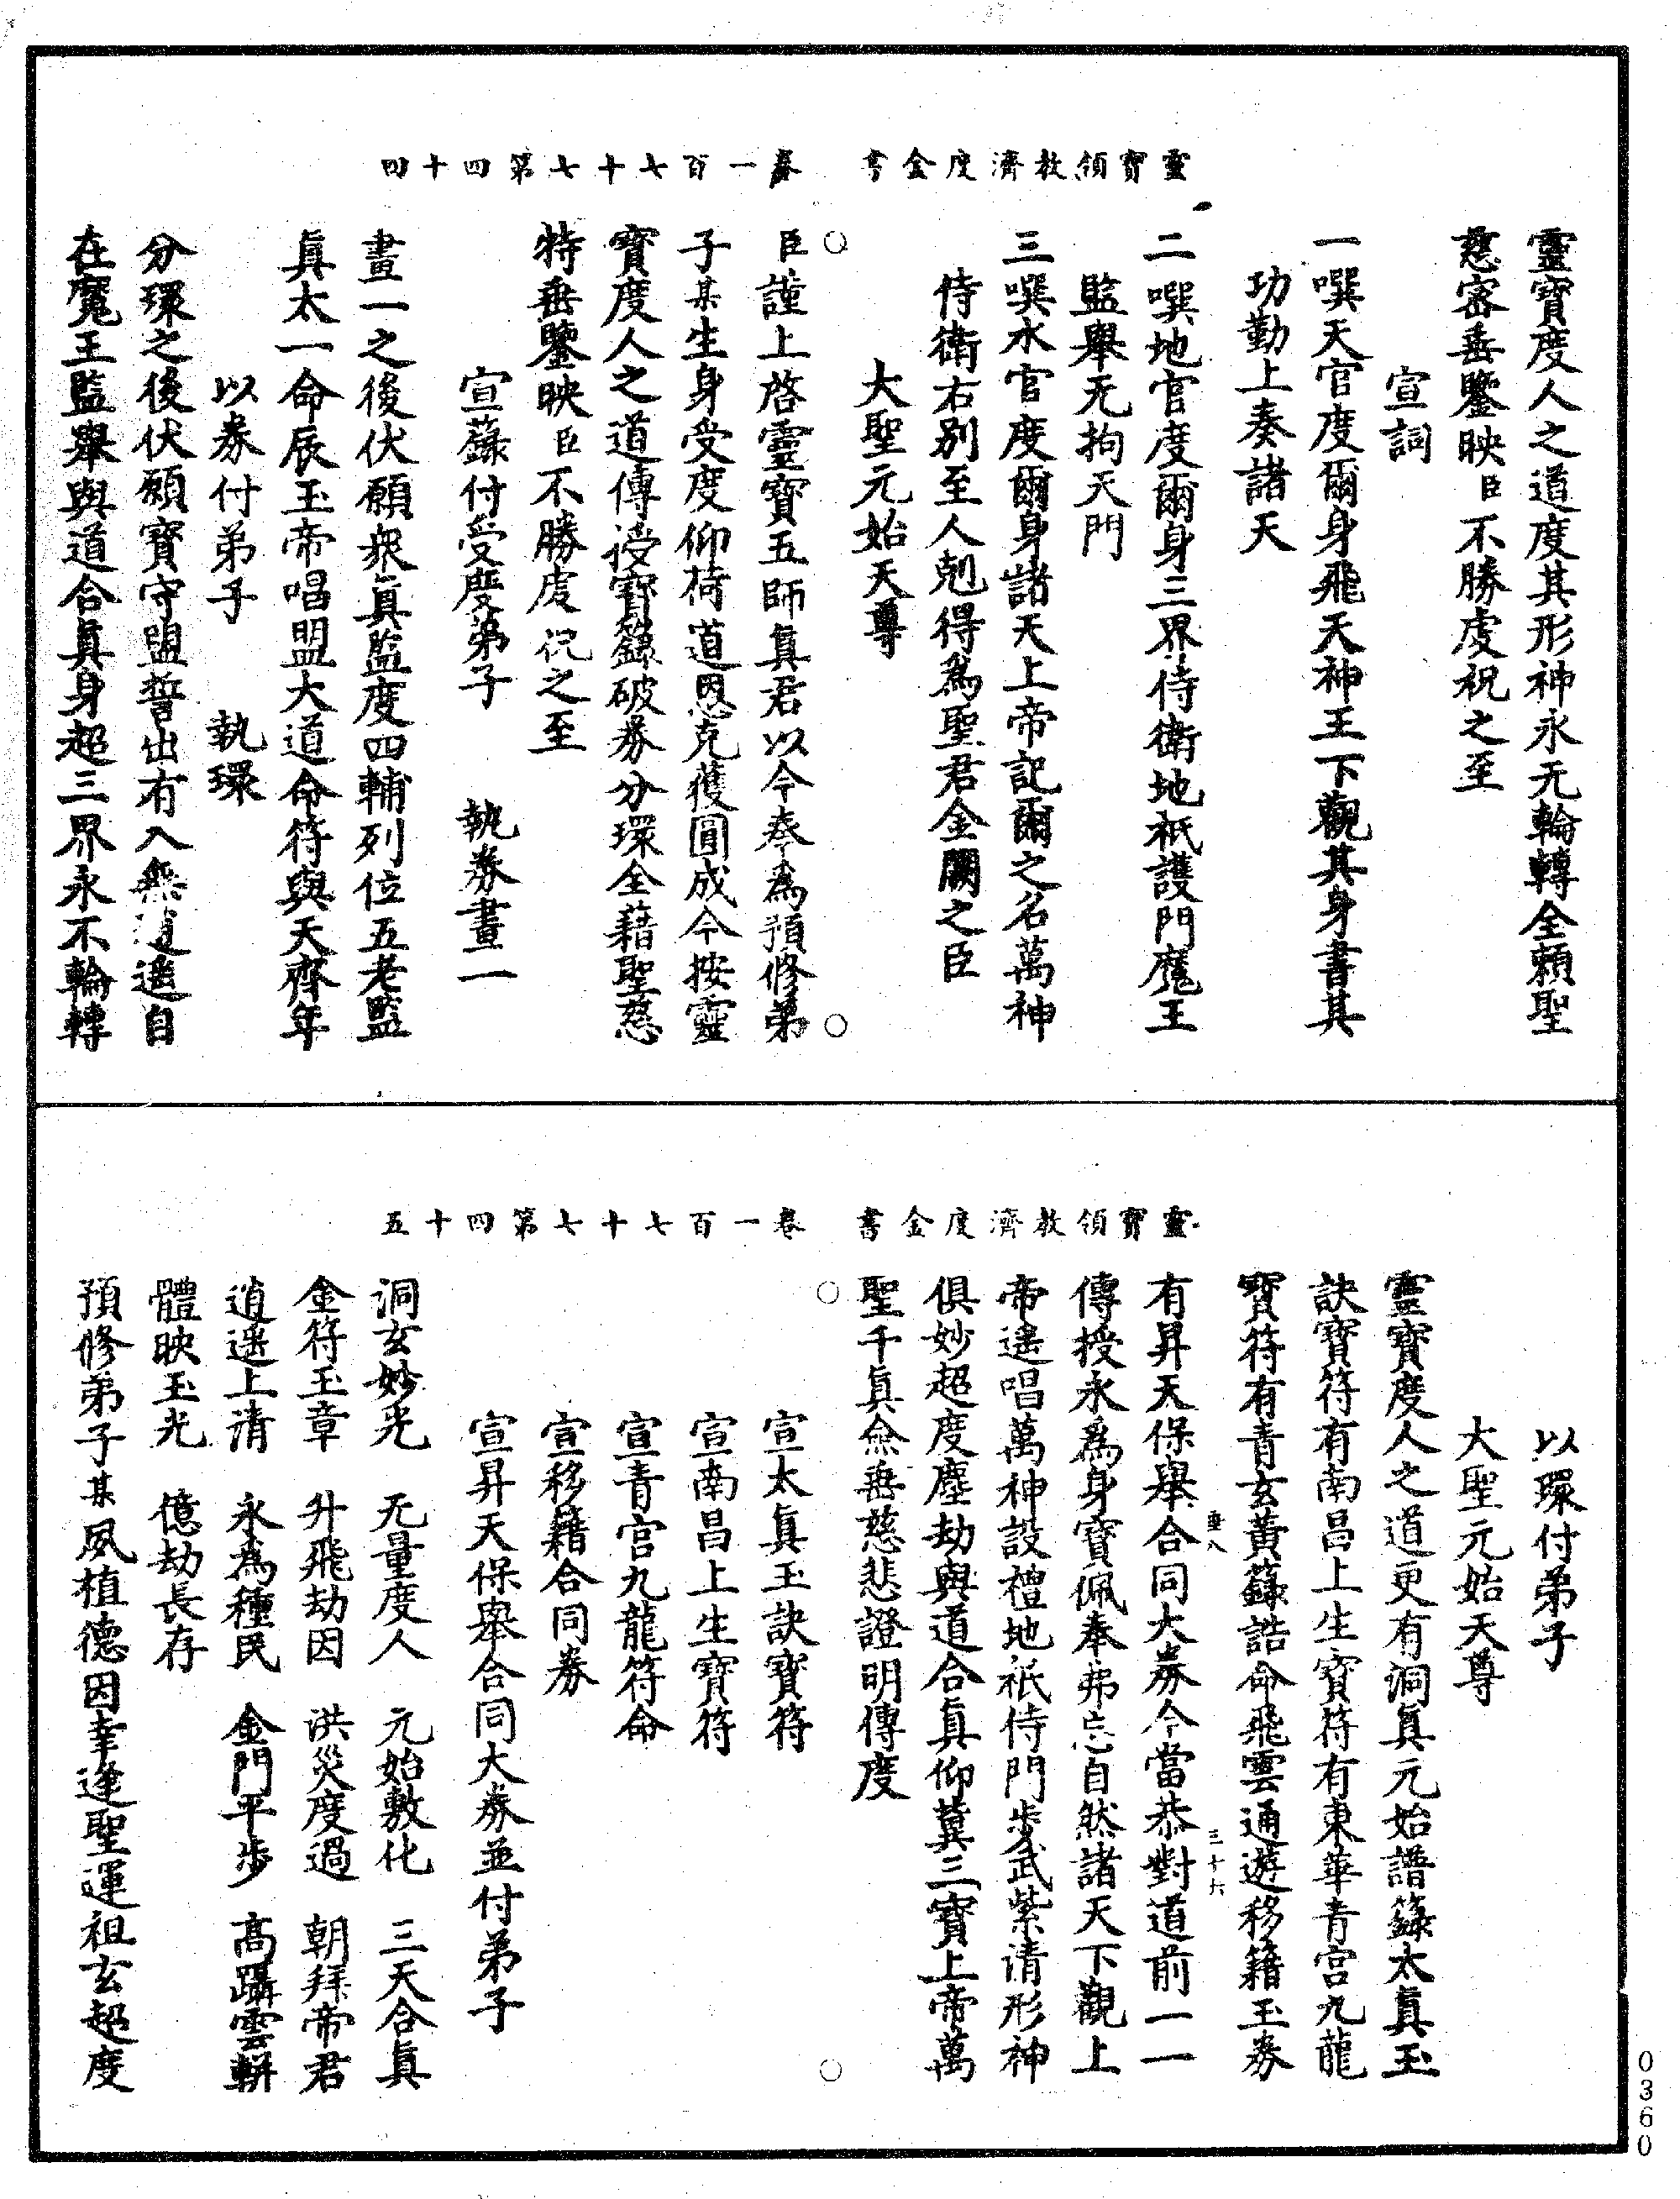 靈寶領教濟度金書　卷一百七十七第四十四
靈寶度人之道度其形神永无輪轉全賴聖
慈容垂鑒映臣不勝虔祝之至
宣詞
一噀天官度爾身飛天神王下觀其身書其
功勤上奏諸天
二噀地官度爾身三界侍衛地祇護門魔王
監舉无拘天門
三噀水官度爾身諸天上帝記爾之名萬神
侍衛右別至人剋得為聖君金闕之臣
大聖元始天尊
臣謹上啓靈寶五師真君以今奉為預修弟
子某生身受度仰荷道恩克獲圓成今按靈
寶度人之道傳授寶籙破券分環全藉聖慈
特垂鑒映臣不勝虔祝之至
宣籙付受度弟子　執券畫一
畫一之後伏願衆真監度四輔列位五老監
真太一命辰玉帝唱盟大道命符與天齊年
以券付弟子　執環
分環之後伏願寶守盟誓出有入無逍遙自
在魔王監舉與道合真身超三界永不輪轉
靈寶領教濟度金書　卷一百七十七第四十五
以環付弟子
大聖元始天尊
靈寶度人之道更有洞真元始譜籙太真玉
訣寶符有南昌上生寶符有東華青宮九龍
寶符有青玄黃籙誥命飛雲通遊移籍玉券
垂八　三十六
有昇天保舉合同大券今當恭對道前一一
傳授永為身寶佩奉弗忘自然諸天下觀上
帝遙唱萬神設禮地祇侍門步武紫清形神
俱妙超度塵劫與道合真仰冀三寶上帝萬
聖千真僉垂慈悲證明傳度
宣太真玉訣寶符
宣南昌上生寶符
宣青宮九龍符命
宣移籍合同券
宣昇天保舉合同大券並付弟子
洞玄妙光　无量度人　元始敷化　三天合真
金符玉章　升飛劫因　洪災度過　朝拜帝君
逍遙上清　永為種民　金門平步　高躡雲軿
體映玉光　億劫長存
預修弟子某夙植德因幸逢聖運祖玄超度
0360